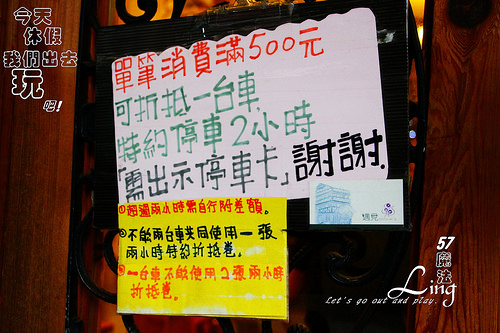 今天
休假
我們出去
玩
吧!
單筆消費滿500元
可折抵一台車
特約停車2小時
「需出示停車卡」謝謝.
①超過兩小時需自行附差額。
②不能兩台車共同使用一張
兩小時特約折抵卷。
③一台車不能使用2張兩小時
折抵卷。
57
魔法
Ling
Let's go out and play.